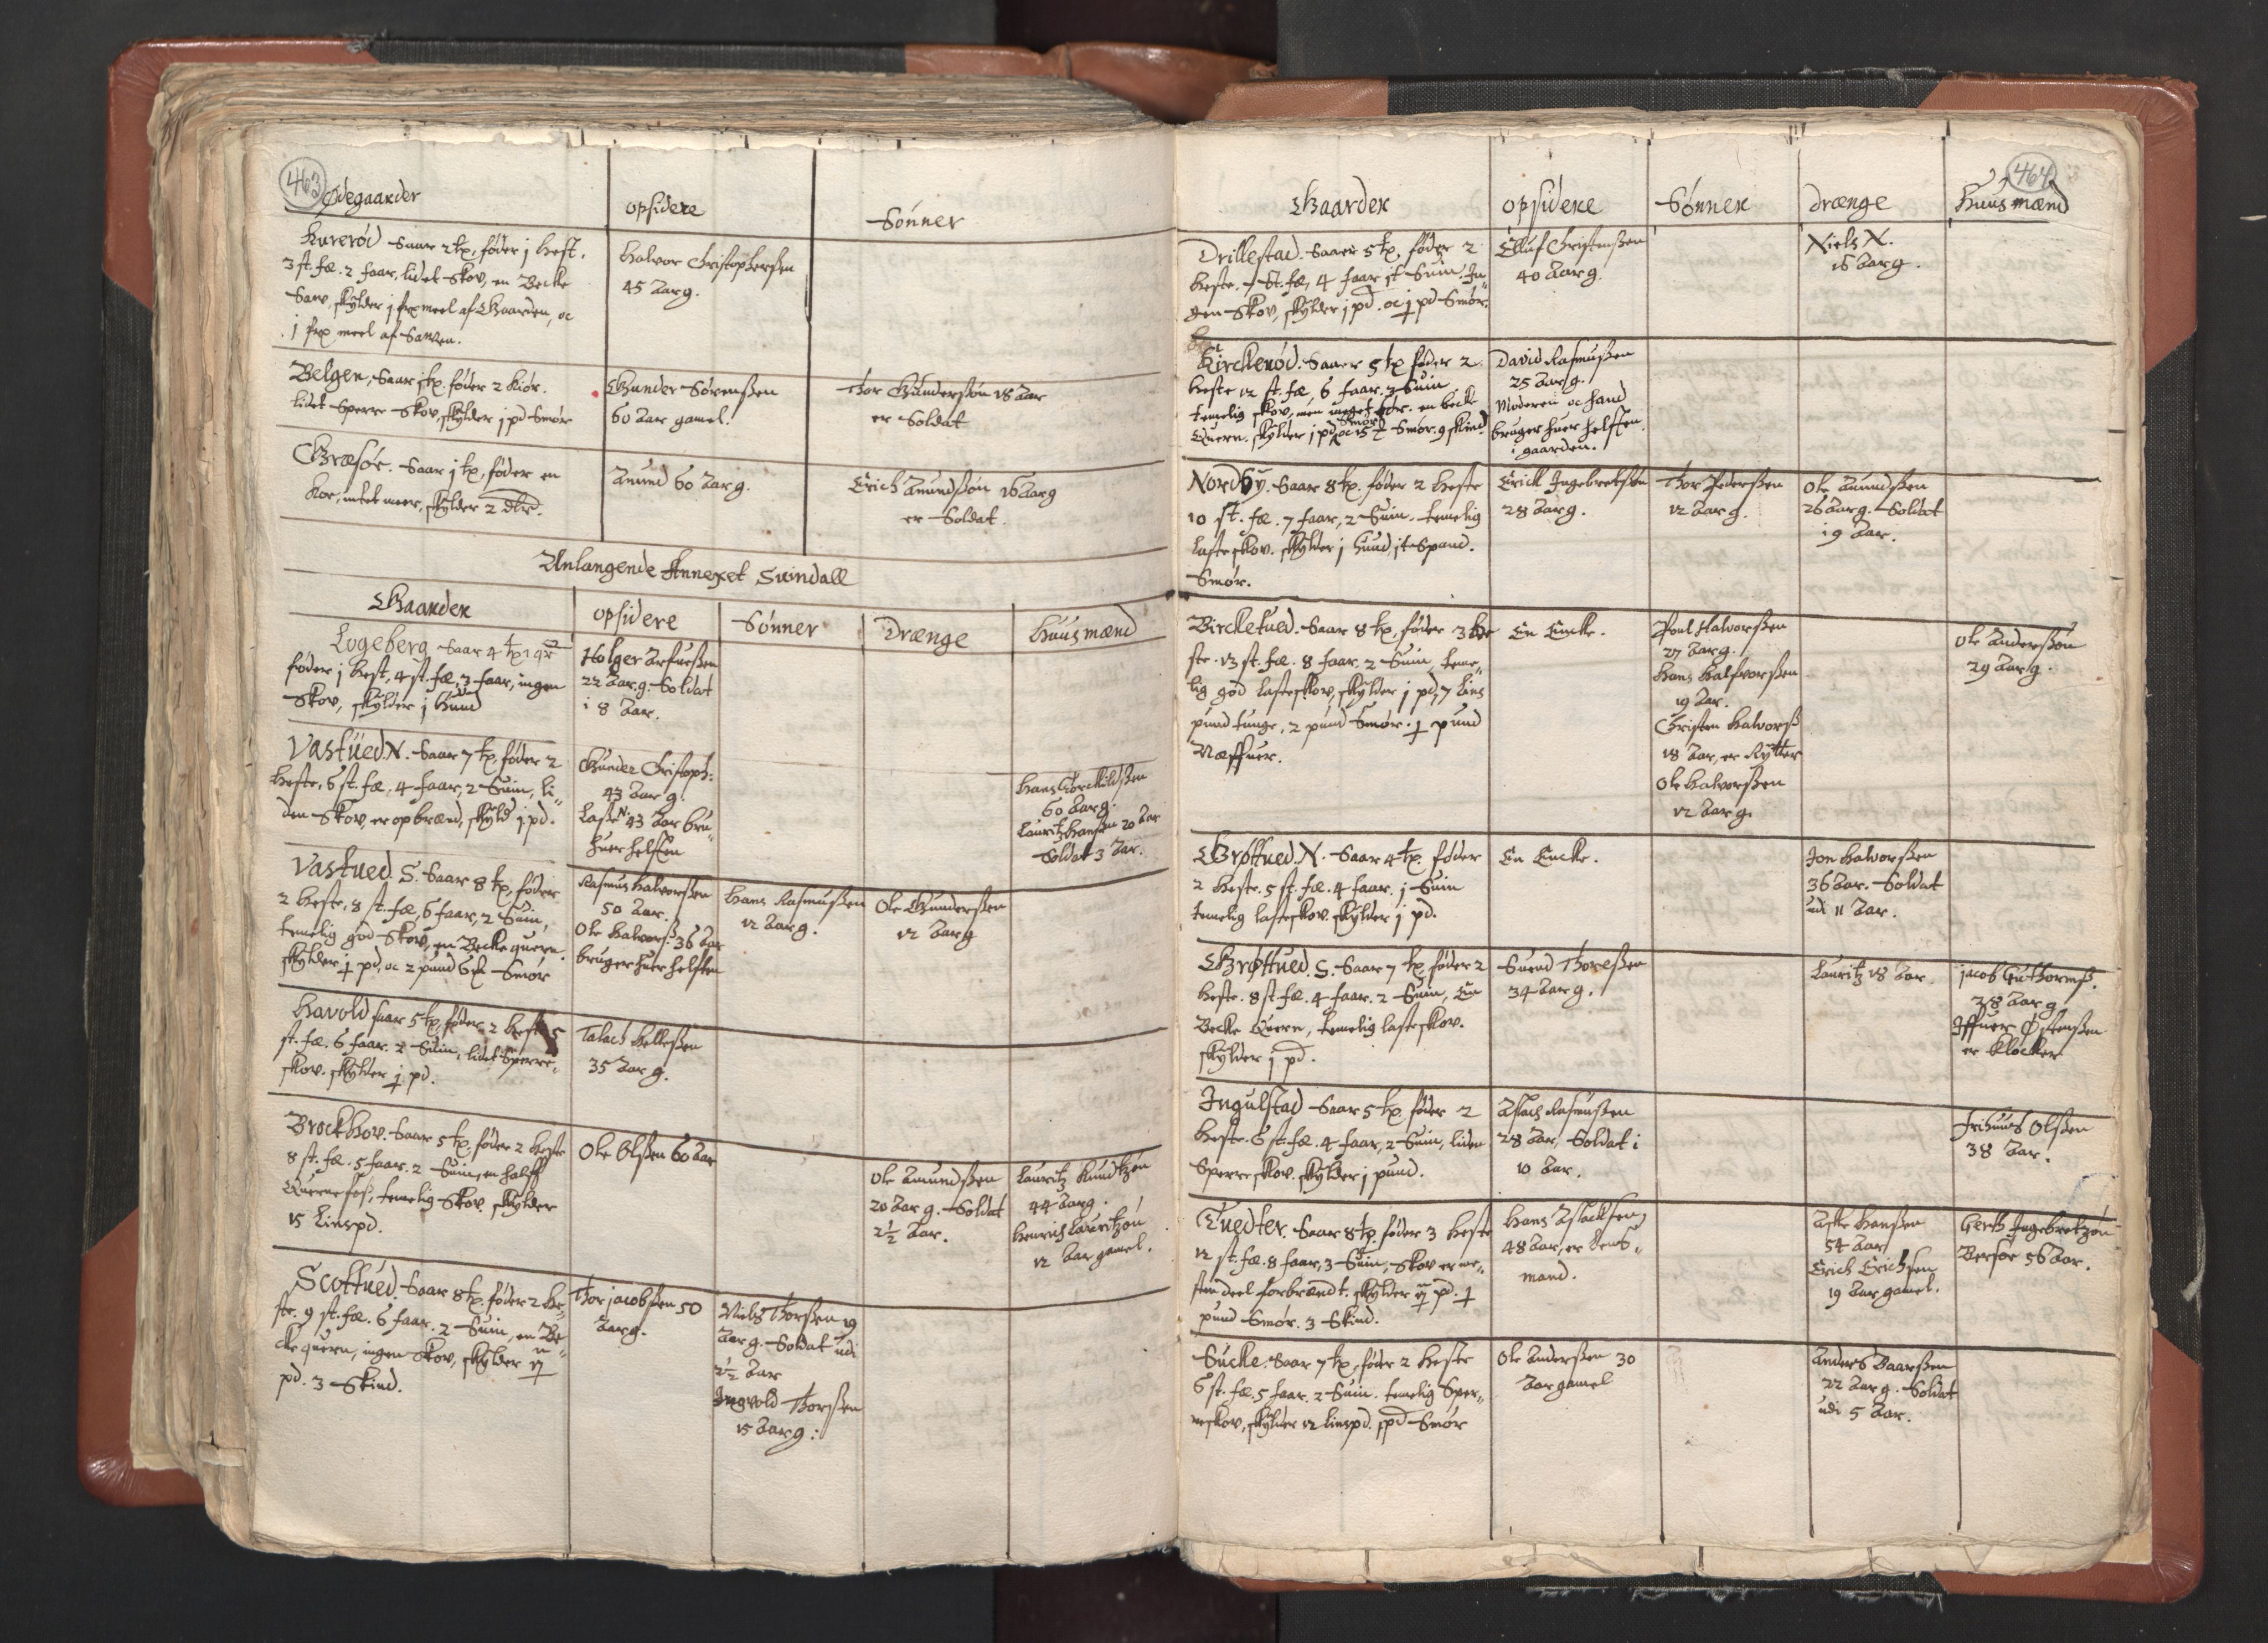 463
Ødegaarder
opsidere
Sønner
Kurerød Saar 2 tp, føder j hest,
3 st. fæ. 2 faar, lidet Skov, en Becke
Saw, skylder j frx meel af Gaarden, oc
j frx meel af Sawen.
Halvor Christophersen
45 Aar g.
Belgen, Saar j tp. føder 2 kiør.
lidet Sperre Skov, skylder j pd Smør
Gunder Sørenßen
60 Aar gamel.
Thor Gunderßøn 18 Aar
er Soldat
Græsør. Saar j tp, føder en
koe, intet meer, skylder 2 dlr.
Amund 60 Aar g.
Erich Amundßøn 16 Aar g
er Soldat.
Anlangende Annexet Suindall
Gaarder
opsidere
Sønner
Drænge
Huusmænd
Logeberg Saar 4 tp
føder j hest, 4 st. fæ, 3 faar, ingen
Skov, skylder j Huud
Holger Arfueßen
22 Aar g. Soldat
i 8 Aar.
Vastued N. Saar 7 tp, føder 2
heste, 6 st. fæ, 4 faar, 2 Suin, li-
den Skov, er opbrænd, skyld j pd.
Gunder Christoph:
43 Aar g.
Laße N. 43 Aar bru-
huer helften
Hans Torckildßen
60 Aar g.
Lauritz Hanßen 20 Aar
Soldat 3 Aar.
Vastued S. Saar 8 tp, føder
2 heste, 8 st. fæ, 6 faar, 2 Suin,
temelig god Skov, en Becke quern.
skylder j pd, oc 2 pund Smør
Rasmus Halvorßen
50 Aar.
Ole Halvorß: 36 Aar
bruger huer helften
Hans Rasmußen
12 Aar g.
Ole Gunderßen
12 Aar g
Havold saar 5 tp, føder 2 heste 5
st. fæ. 6 faar. 2 Suin, lidet Sperre-
skov. skylder j pd.
Talach Helleßen
35 Aar g.
Brockhov. Saar 5 tp, føder 2 heste
8 st. fæ. 5 faar. 2 Suin, en halff
Quernefoß, temelig Skov. skylder
15 Linspd.
Ole Olßen 60 Aar
Ole Amundßen
20 Aar g. Soldat
2½ Aar.
Lauritz Knudtzøn
44 Aar g.
Henrich Lauritzøn
12 Aar gamel.
Scottued. Saar 8 tp. føder 2 he-
ste. 9 st. fæ. 6 faar. 2 Suin, en Be-
cke quern, ingen Skov, skylder
pd. 3 Skind.
Thor jacobßen 50
Aar g.
Niels Thorßen 19
Aar g. Soldat udi
2½ Aar
Ingvold Thorßen
15 Aar g:
464
Gaarder
opsidere
Sønner
Drænge
Huusmænd
Drillestad. Saaer 5 tp, føder 2
heste. 7 St. fæ, 4 faar j Suin. In-
gen Skov, skylder j pd. oc j pd Smør.
Elluf Christenßen
40 Aar g.
Niels N.
16 Aar g.
Kirckerød. Saaer 5 tp føder 2
heste 12 st. fæ, 6 faar. 2 Suin
temelig skov, men meget tør. en becke
Quern. skylder j pd Smør oc 15 Smør. 9 skind.
David Rasmußen
25 Aar g.
Moderen oc hand
bruger huer helften.
i gaarden.
Nordby. Saar 8 tp. føder 2 heste
10 st. fæ. 7 faar, 2 Suin. temelig
lasteskov. skylder j huud, Spand.
Smør.
Erick Ingebretßen
28 Aar g.
Thor Pederßen
12 Aar g.
Ole Amundßen
26 Aar g. Soldat
i 9 Aar.
Bircketued. Saar 8 tp, føder 3 he
ste. 13 st. fæ. 8 faar. 2 Suin, teme-
lig god lasteskov, skylder j pd, 7 Lins
pund tunge, 2 pund Smør. j pund
Næffuer.
En Encke.
Poul Halvorßen
27 Aar g.
Hans Halfvorßen
19 Aar.
Christen Halvorß
18 Aar, er Rytter
Ole Halvorßen
12 Aar g.
Ole Anderßøn
29 Aar g.
Grøttued. N. Saar 4 tp. føder
2 heste. 5 st. fæ. 4 faar. j Suin
temelig lasteskov. skylder j pd.
En Encke.
Jon Halvorßen
36 Aar. Soldat
udi 11 Aar.
Grøttued. S. Saar 7 tp føder 2
heste. 8 st. fæ. 4 faar. 2 Suin, En
Becke Quern, temelig lasteskov.
skylder j pd.
Suend Thoreßen
34 Aar g.
Lauritz 18 Aar.
jacob Guthormß.
38 Aar g
Iffuer Østenßen
er Klocker
Ingulstad Saar 5 tp, føder 2
heste. 6 st. fæ. 4 faar, 2 Suin, liden
Sperreskov. skylder j pund.
Aslach Rasmußen
28 Aar, Soldat i
10 Aar.
Olßen
38 Aar.
Tuedter. Saar 8 tp. føder 3 heste
12 st. fæ. 8 faar, 3 Suin, Skov er me-
sten deel forbrændt. skylder pd. j
pund Smør. 3 Skind.
Hans Aslacksen,
48 Aar, er Lens-
mand.
Aße Hanßen
54 Aar
Erich Erichsen
19 Aar gamel.
Gertz Ingebretzøn
Bersøe 56 Aar.
Sucke. Saar 7 tp, føder 2 heste
6 st. fæ, 5 faar. 2 Suin. temelig Sper-
reskov, skylder 12 linspd. j pd Smør
Ole Anderßen 30
Aar gamel
Anders Baarßen
22 Aar g. Soldat
udi 5 Aar.